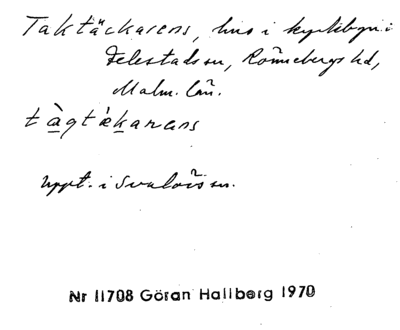 Taktäckarens, hus i kyrkbyn i
Felestads sn, Rönnebergs hd,
Malm. län.
tàgtǽkarens
Uppt. i Svalövs sn.
Nr 11708 Göran Hallberg 1970